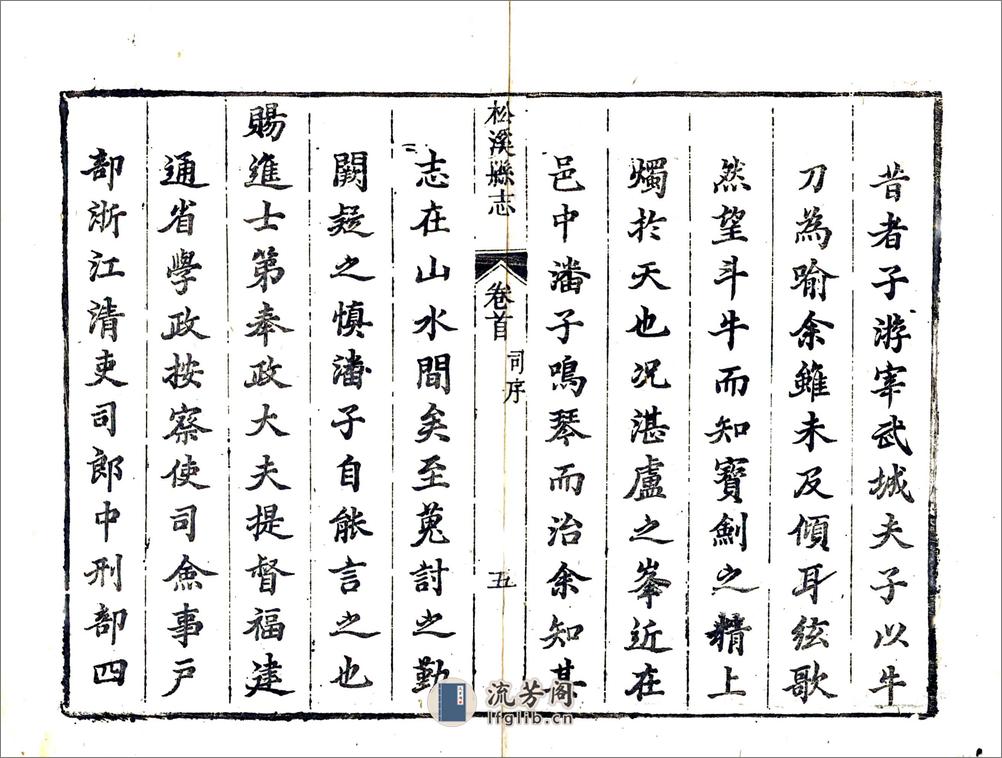 昔者子游宰武城夫子以牛
刀為喻余雖未及傾耳絃歌
然望斗牛而知寶劍之精上
燭於天也况湛盧之峯近在
邑中潘子鳴琴而治余知其
松溪縣志
卷首
司序
五
志在山水間矣至蒐討之勤
闕疑之慎潘子自能言之也
賜進士第奉政大夫提督福建
通省學政按察使司僉事戶
部浙江清吏司郎中刑部四
流芳阁
lfglib.cn